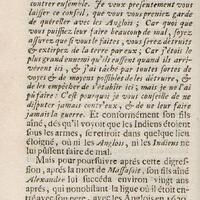 contrer ensemble. Je veux presentement vous
laisser ce conseil, que vous vous preniez garde
de quéreller avec les Anglois; Car quoi que
vous puissiez leur faire beaucoup de mal, soyez
assurez que si vous le faites, vous serez détruits
& extirpez de la terre par eux; Car j'étois le
plus grand ennemi qu'ils eussent quand ils arri-
verent ici, & j'ai tâché par toutes sortes de
voyes & de moyens possibles de les détruire, &
de les empêcher de s'établir ici, mais je n'ai
pû faire. C'est pourquoi je vous conseille de ne
disputer jamais contr'eux, & de ne leur faire
jamais la guerre. Et conformément son fils
aîné, dés qu'il voyoit que les Indiens étoient
sous les armes, se retiroit dans quelque lieu
éloigné, où ni les Anglois, ni les Indiens ne
lui pûssent faire de mal.
Mais pour poursuivre aprés cette digres-
sion, aprés la mort de Massasoit, son fils aîné
Alexandre lui succéda environ vingt ans
aprés, qui nonobstant la ligue où il étoit
avec les Anglois en 1620.